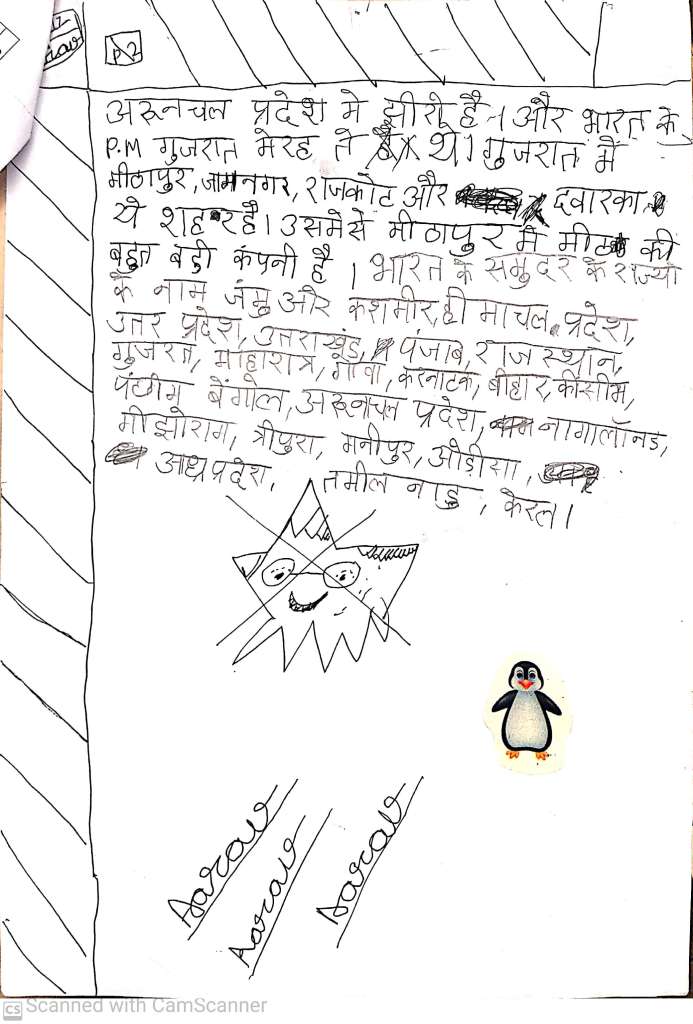 P2
अरूनचल प्रदेश मे झीरो है । और भारत के
P.M गुजरात मेरह ते थे। गुजरात में
मीठापुर, जामनगर, राजकोट और दवारका
ये शहर है। उसमेसे मीठापुर मे मीठ की
बहुत बडी कंपनी है । भारत के समुदर के राज्यो
के नाम जंमु और कशमीर, ही माचल प्रदेश,
उतर प्रदेश, उतराखंड, पंजाब, राजस्थान,
गुजरत, माहारात्र, गोवा, करनाटक, बीहार,
पंछीम बेंगोल, अरूनाचल प्रदेश, नागालॅनड,
मीझोराम, त्रीपुरा, मनीपुर, ओडीसा,
आध्रप्रदेश, तमील नाडु, केरल।
Aarav
Aarav
Aarav
CS Scanned with CamScanner